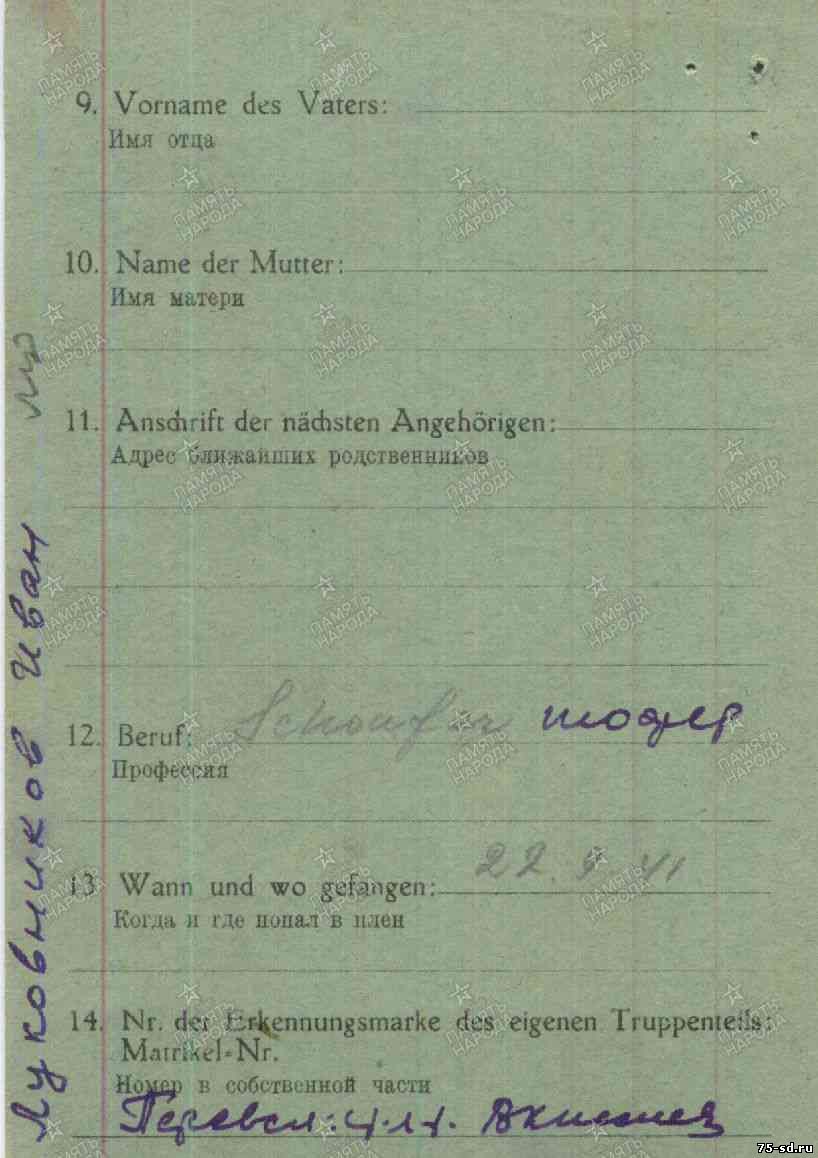 9. Vorname des Vaters:
Имя отца
10. Name der Mutter:
Имя матери
11. Anschrift der nächsten Angehörigen:
Адрес ближайших родственников
12. Beruf: шофер
Профессия
13 Wann und wo gefangen: 22. 9 41
Когда и где попал в плен
14. Nr. der Erkennungsmarke des eigenen Truppenteils:
Matrikel-Nr.
Номер в собственной части
Перевел:
Луковников Иван
ПАМЯТЬ НАРОДА
75-sd.ru